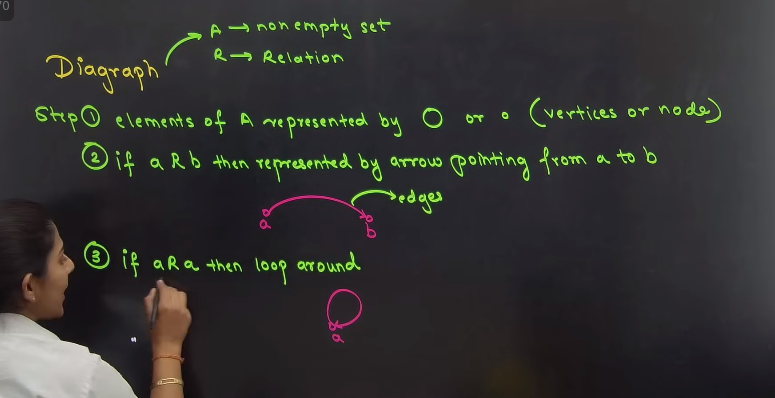 70
A → non empty set
R → Relation
Diagraph
Step ① elements of A represented by O or o (vertices or node)
② if a R b then represented by arrow pointing from a to b
edges
a
b
③ if aRa then loop around
a